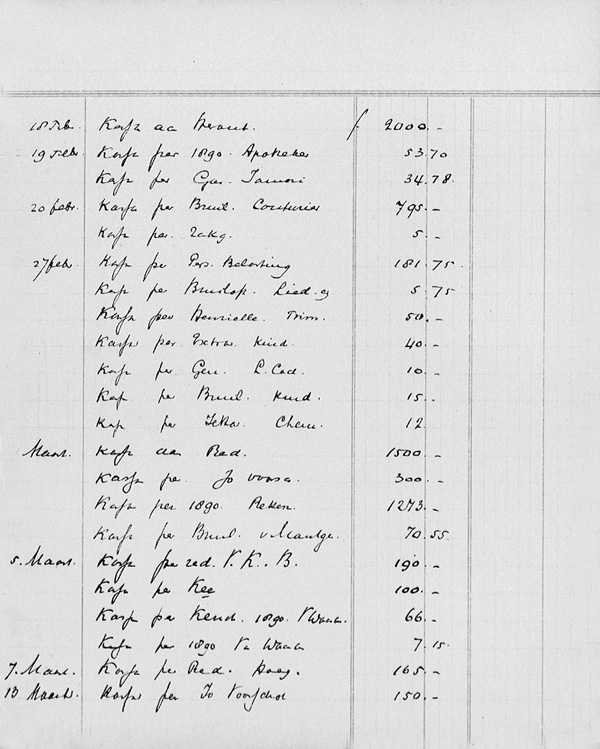 18 Feb. Kassa aan f 2000.-
19 Febr. Kassa per 1890. Apotheker 53.70
Kassa per 34.78.
20 febr. Kassa per Bruil. Couturier 795.-
Kassa per. Zakg. 5.-
27 febr. Kassa per Pers. Belasting 181.75.
Kassa per 5.75
Kassa per Henrielle. Trim. 50.-
Kassa per Extra. Kind. 40.-
Kassa per Gen. L. Cad. 10.-
Kassa per Bruil. Kind. 15.-
Kassa per 12
Maart. Kassa aan Red. 1500.-
Kassa per Jo 300.-
Kassa per 1890. Reken. 1273.-
Kassa per Bruil. 70.55.
5. Maart. Kassa per red. V.K.B. 190.-
Kassa per Kee 100.-
Kassa per 1890. 66.-
Kassa per 1890 7.15.
7. Maart. Kassa per Red. Haag. 165.-
13 Maart. Kassa per Jo Voorschot 150.-